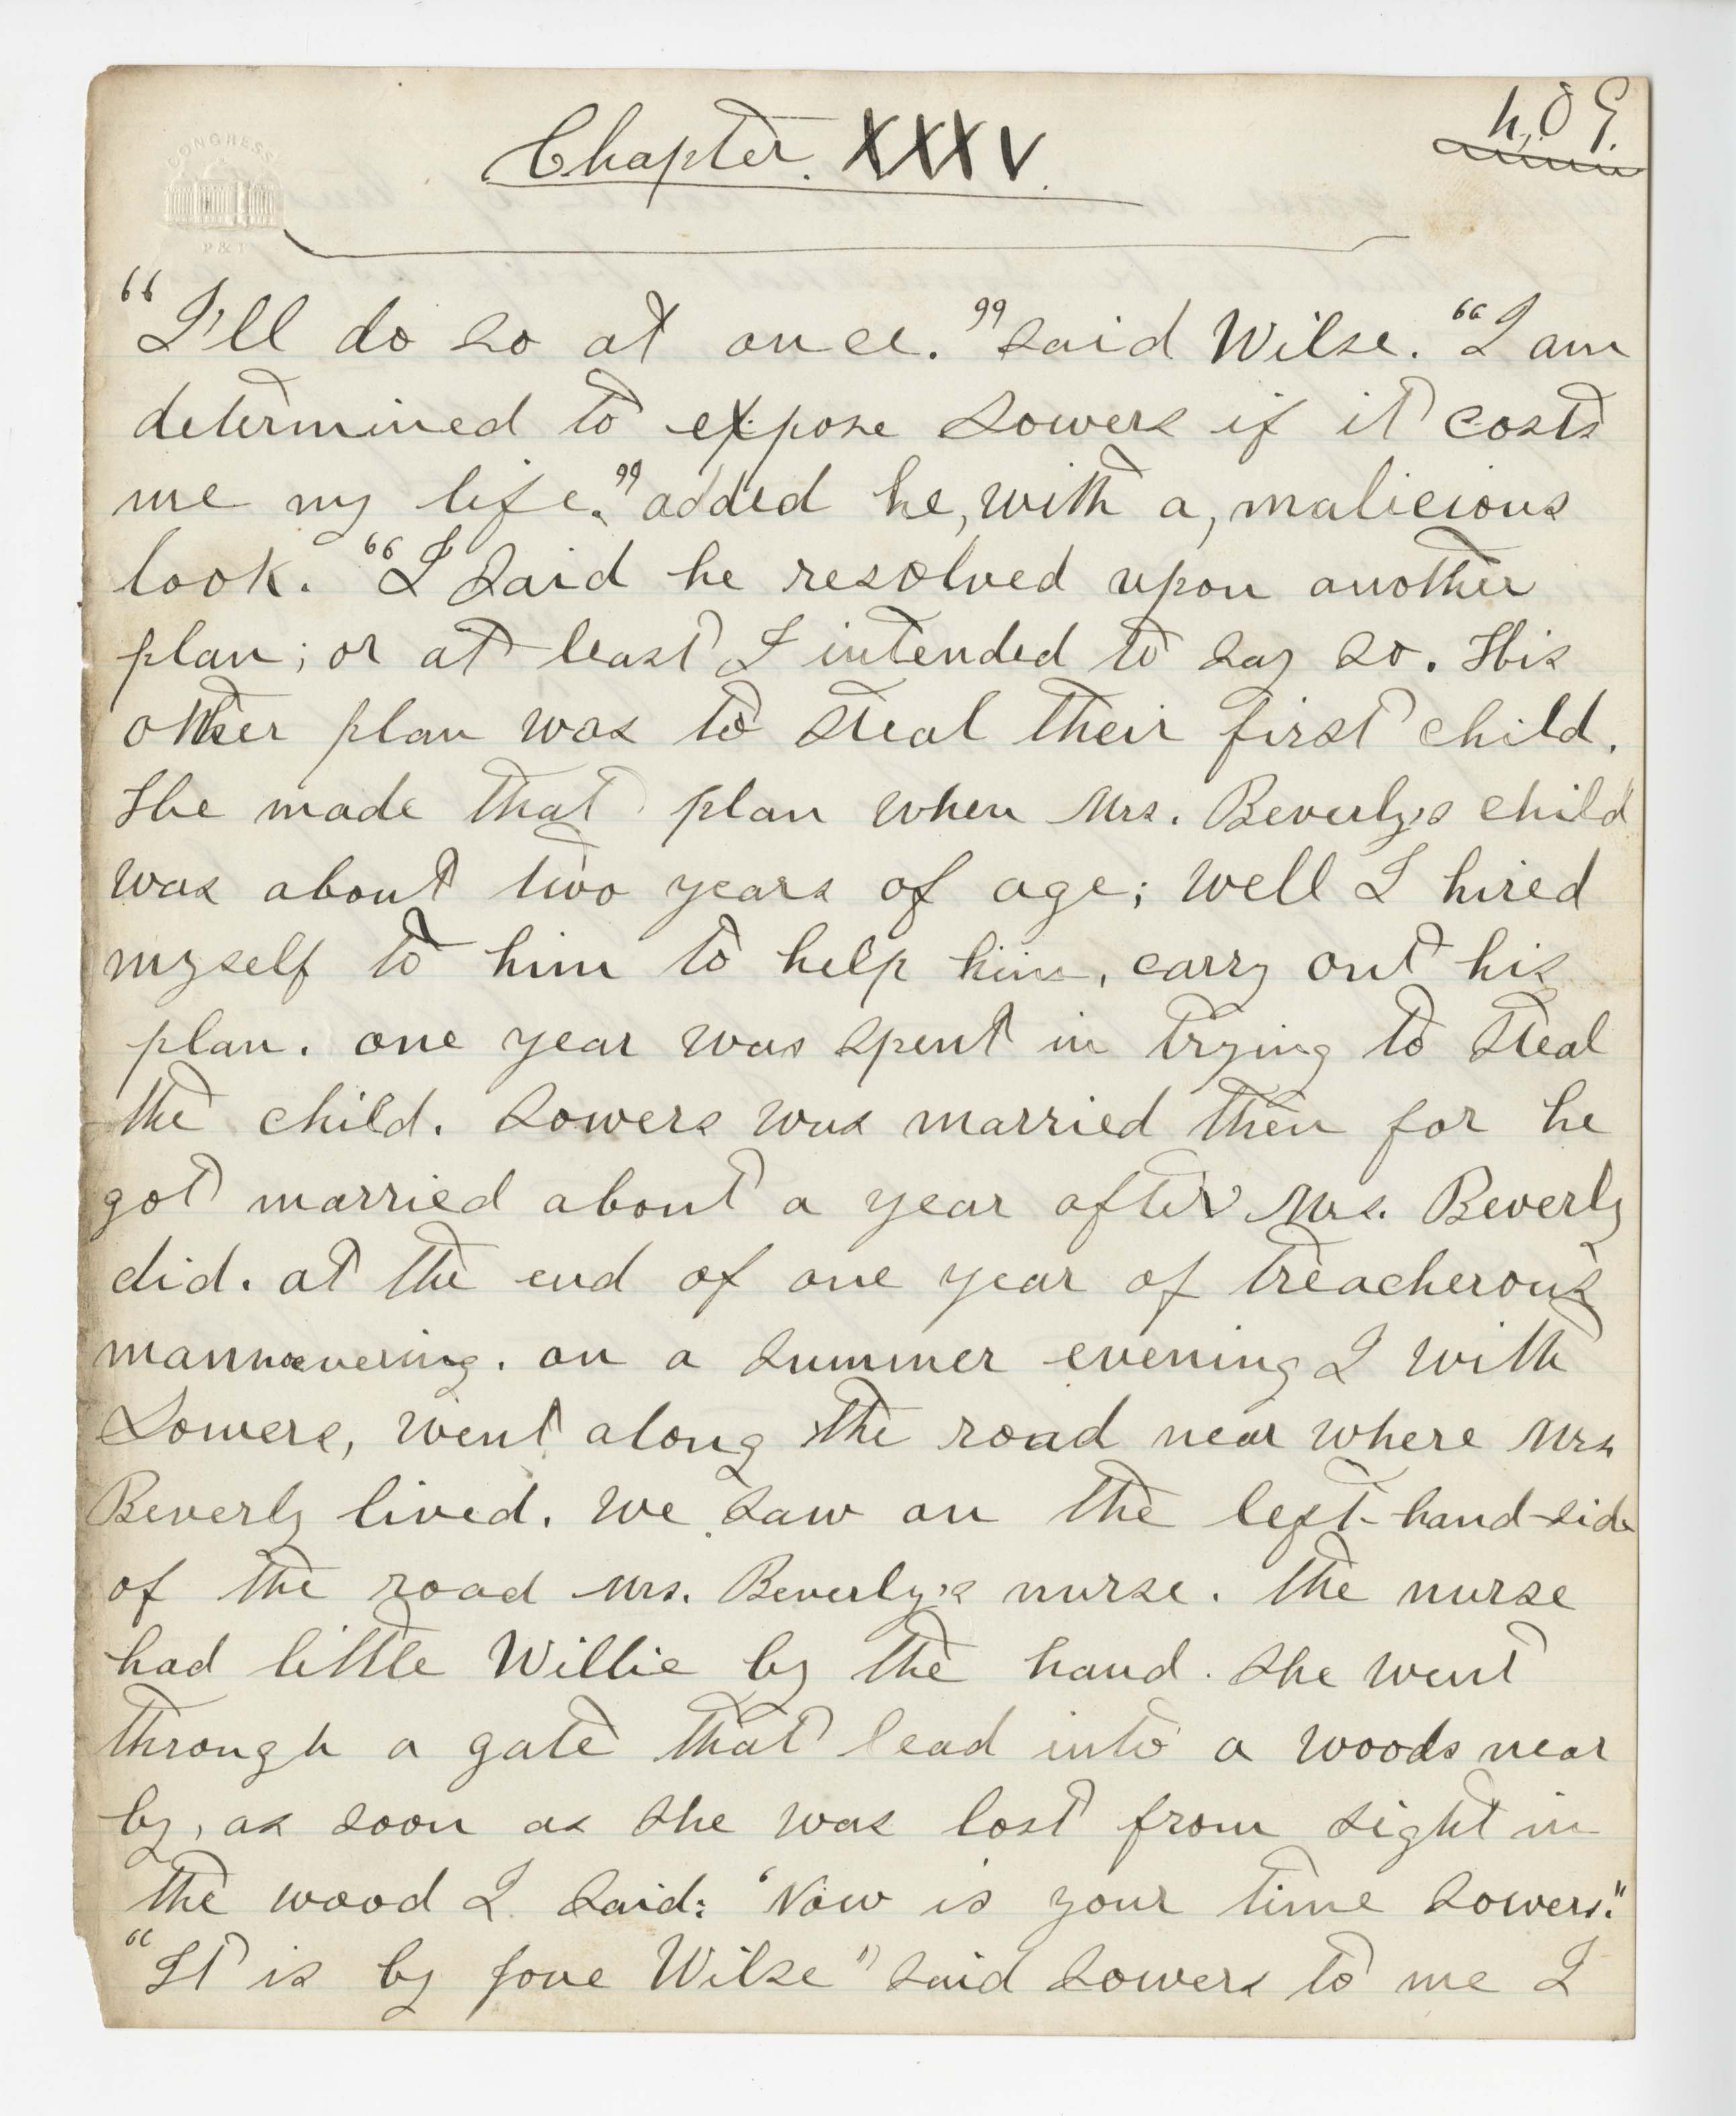 CONGRESS
P & J
Chapter. XXXV.
409.
"I'll do so at once." said Wilse. "I am
determined to expose Sowers if it costs
me my life." added he, with a, malicious
look. "I said he resolved upon another
plan; or at least I intended to say so. His
other plan was to steal their first child.
He made that plan when Mrs. Beverly's child
was about two years of age; well I hired
myself to him to help him, carry out his
plan. one year was spent in trying to steal
the child. Sowers was married then for he
got married about a year after Mrs. Beverly
did. at the end of one year of treacherous
mannoevering. on a summer evening I with
Sowers, went along the road near where Mrs
Beverly lived. we saw on the left-hand-side
of the road Mrs. Beverly's nurse. the nurse
had little Willie by the hand. she went
through a gate that lead into a woods near
by, as soon as she was lost from sight in
the wood I said: 'Now is your time Sowers."
"It is by jove Wilse" said Sowers to me I